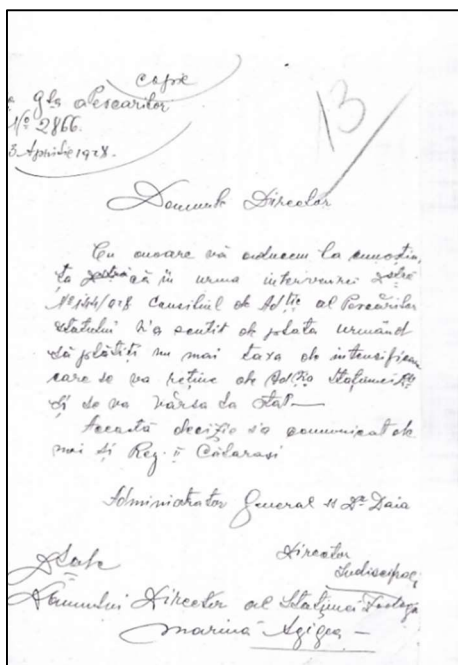 copie
Gla Pescariilor
No 2866.
3 Aprilie 1928.
13
Domnule Director
Cu onoare vă aducem la cunoștin
ța că în urma intervenirei
No 144/928 Consiliul de Adție al Pescăriilor
Statului V'a scutit de plata urmând
să plătiți nu mai taxa de intensificare
care se va reține de Adția Stațiunei
și se va vărsa la Stat—
Această decizie s'a comunicat de
noi și Reg. II Călărași
Administrator General ss Dr Daia
Director
ss Indescifrabil
D Sale
Domnului Director al Stațiunei Zoologice
Marină Agigea —